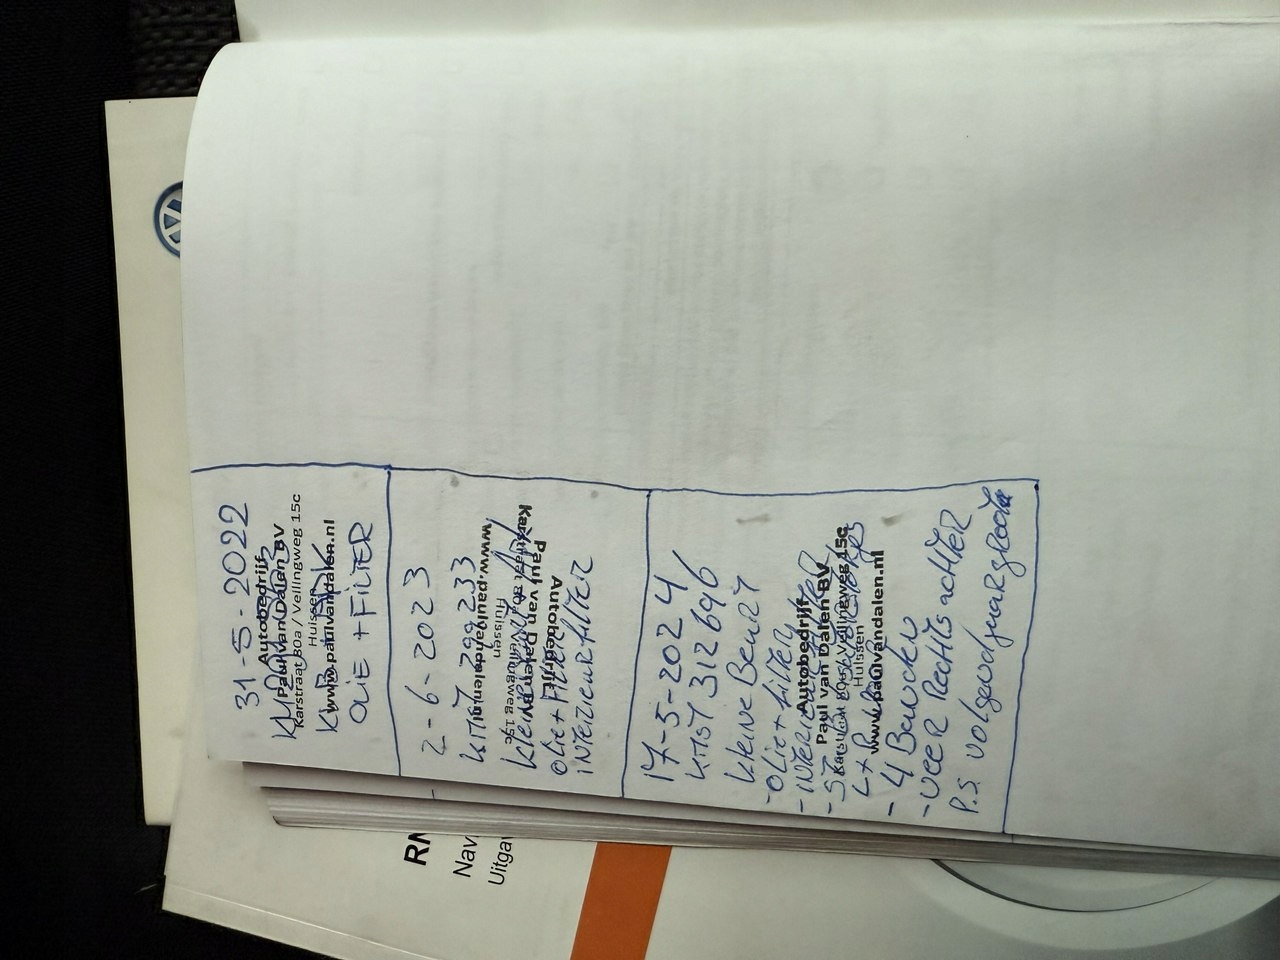 31-5-2022
Autobedrijf
Paul van Dalen BV
Karstraat 80a / Vellingweg 15c
Huissen
www.paulvandalen.nl
OLIE + FILTER
2-6-2023
KMST 299233
www.paulvandalen.nl
Kleine
Karstraat 80a / Vellingweg 15c
Huissen
Paul van Dalen BV
Autobedrijf
OLIE + FILTER
INTERIEURFILTER
17-5-2024
KMST 312696
Kleine Beurt
- OLIE + FILTER
- INTERIEURFILTER
Autobedrijf
Paul van Dalen BV
Karstraat 80a / Vellingweg 15c
Huissen
www.paulvandalen.nl
- 4 Banden
- Veer Rechts achter
P.S. volgend jaar grote
RN
Nav
Uitga